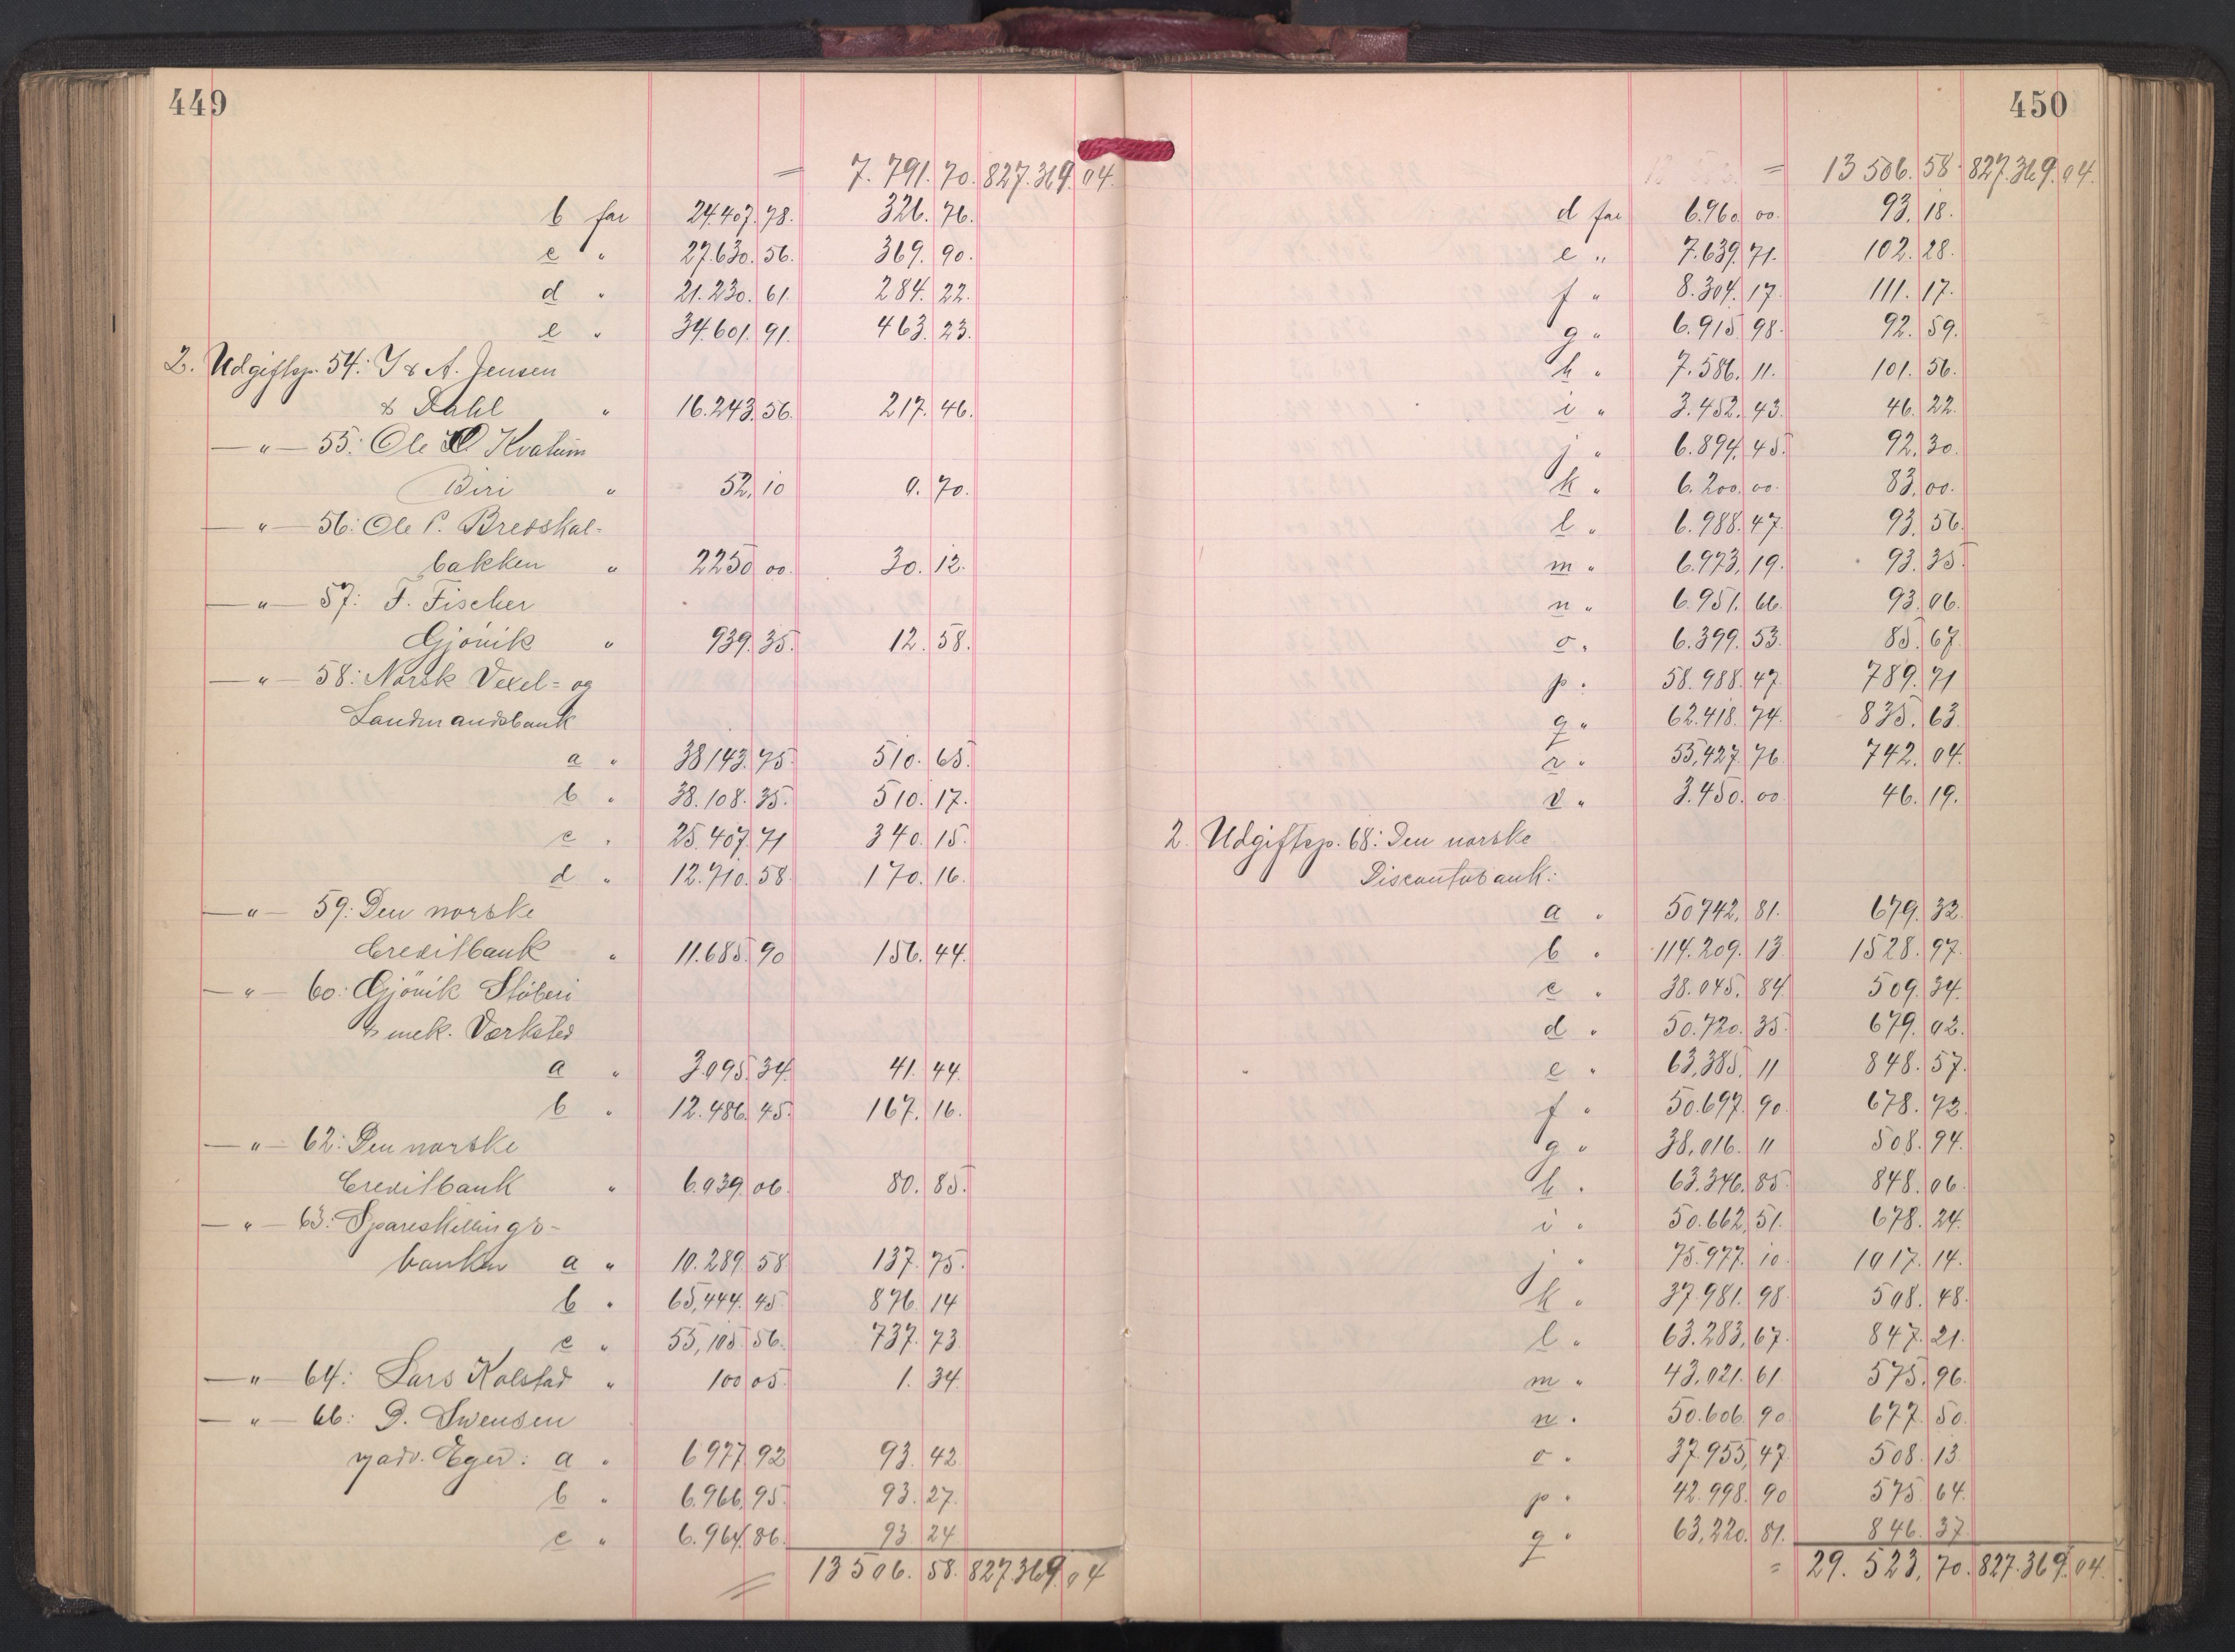 449
= 7.791.70. 827.369.04.
b far 24.407.78. 326.76.
c " 27.630.56. 369.90.
d " 21.230.61. 284.22.
e " 34.601.91. 463.23.
2. Udgiftsp. 54: I & A. Jensen
& Dahl " 16.243.56. 217.46.
—"— 55: Ole Kvalum
Biri " 52,10 0.70.
—"— 56: Ole P. Bredskal-
bakken " 2250 00. 30.12.
—"— 57: F. Fischer
Gjövik " 939.35. 12.58.
—"— 58: Norsk Vexel- og
Landmandsbank
a " 38143.75. 510.65.
b " 38.108.35. 510.17.
c " 25.407.71 340.15.
d " 12.710.58. 170.16.
—"— 59: Den norske
Creditbank " 11.685.90 156.44.
—"— 60: Gjövik Stöberi
& mek. Værksted
a " 3.095.34. 41.44.
b " 12.486.45. 167.16.
—"— 62: Den norske
Creditbank " 6.039.06. 80.85.
—"— 63: Spareskillings-
banken a " 10.289.58 137.75.
b " 65,444.45 876.14
c " 55,105.56. 737.73
—"— 64: Lars Kolstad " 100 05. 1.34
—"— 66: D. Swensen
v/adv. Eger: a " 6977.92 93.42
b " 6.966,95. 93.27.
c " 6.964.86. 93.24
= 13506.58. 827.369.04
450
= 13506.58. 827.369.04.
d far 6.960.00. 93.18.
e " 7.639.71. 102.28.
f " 8.304.17. 111.17.
g " 6.915.98. 92.59.
h " 7.586.11. 101.56.
i " 3.452.43. 46.22.
j " 6.894.45. 92.30.
k " 6.200.00. 83.00.
l " 6.988.47. 93.56.
m " 6.973.19. 93.35.
n " 6.951.66. 93.06.
o " 6.399.53. 85.67.
p " 58.988.47. 789.71
q " 62.418.74. 835.63.
r " 55,427.76. 742.04.
v " 3.450.00 46.19.
2. Udgiftsp. 68: Den norske
Discontobank:
a " 50742,81. 679.32.
b " 114.209.13. 1528.97.
c " 38.045.84. 509.34.
d " 50.720.35. 679.02.
e " 63,385.11 848.57.
f " 50.697.90. 678.72.
g " 38,016.11 508.94.
h " 63.346.85. 848.06.
i " 50.662,51. 678.24.
j " 75.977.10. 1017.14.
k " 37.981.98. 508.48.
l " 63.283,67. 847.21.
m " 43,021.61. 575.96.
n " 50.606.90. 677.50.
o " 37.955,47. 508.13.
p " 42.998.90 575.64.
q " 63,220.81. 846.37
= 29.523,70. 827.369.04.